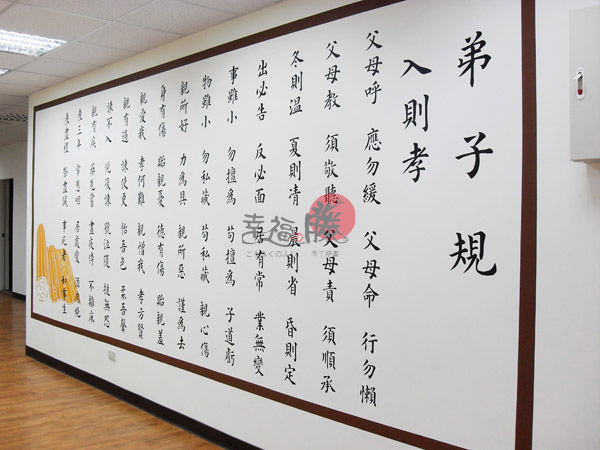 弟子規
入則孝
父母呼 應勿緩 父母命 行勿懶
父母教 須敬聽 父母責 須順承
冬則溫 夏則清 晨則省 昏則定
出必告 反必面 居有常 業無變
事雖小 勿擅爲 苟擅爲 子道虧
物雖小 勿私藏 苟私藏 親心傷
親所好 力爲具 親所惡 謹爲去
身有傷 貽親憂 德有傷 貽親羞
親愛我 孝何難 親憎我 孝方賢
親有過 諫使更 怡吾色 柔吾聲
諫不入 悅復諫 號泣隨 撻無怨
親有疾 藥先嘗 晝夜侍 不離床
喪三年 常悲咽 居處變 酒肉絕
喪盡禮 祭盡誠 事死者 如事生
幸福